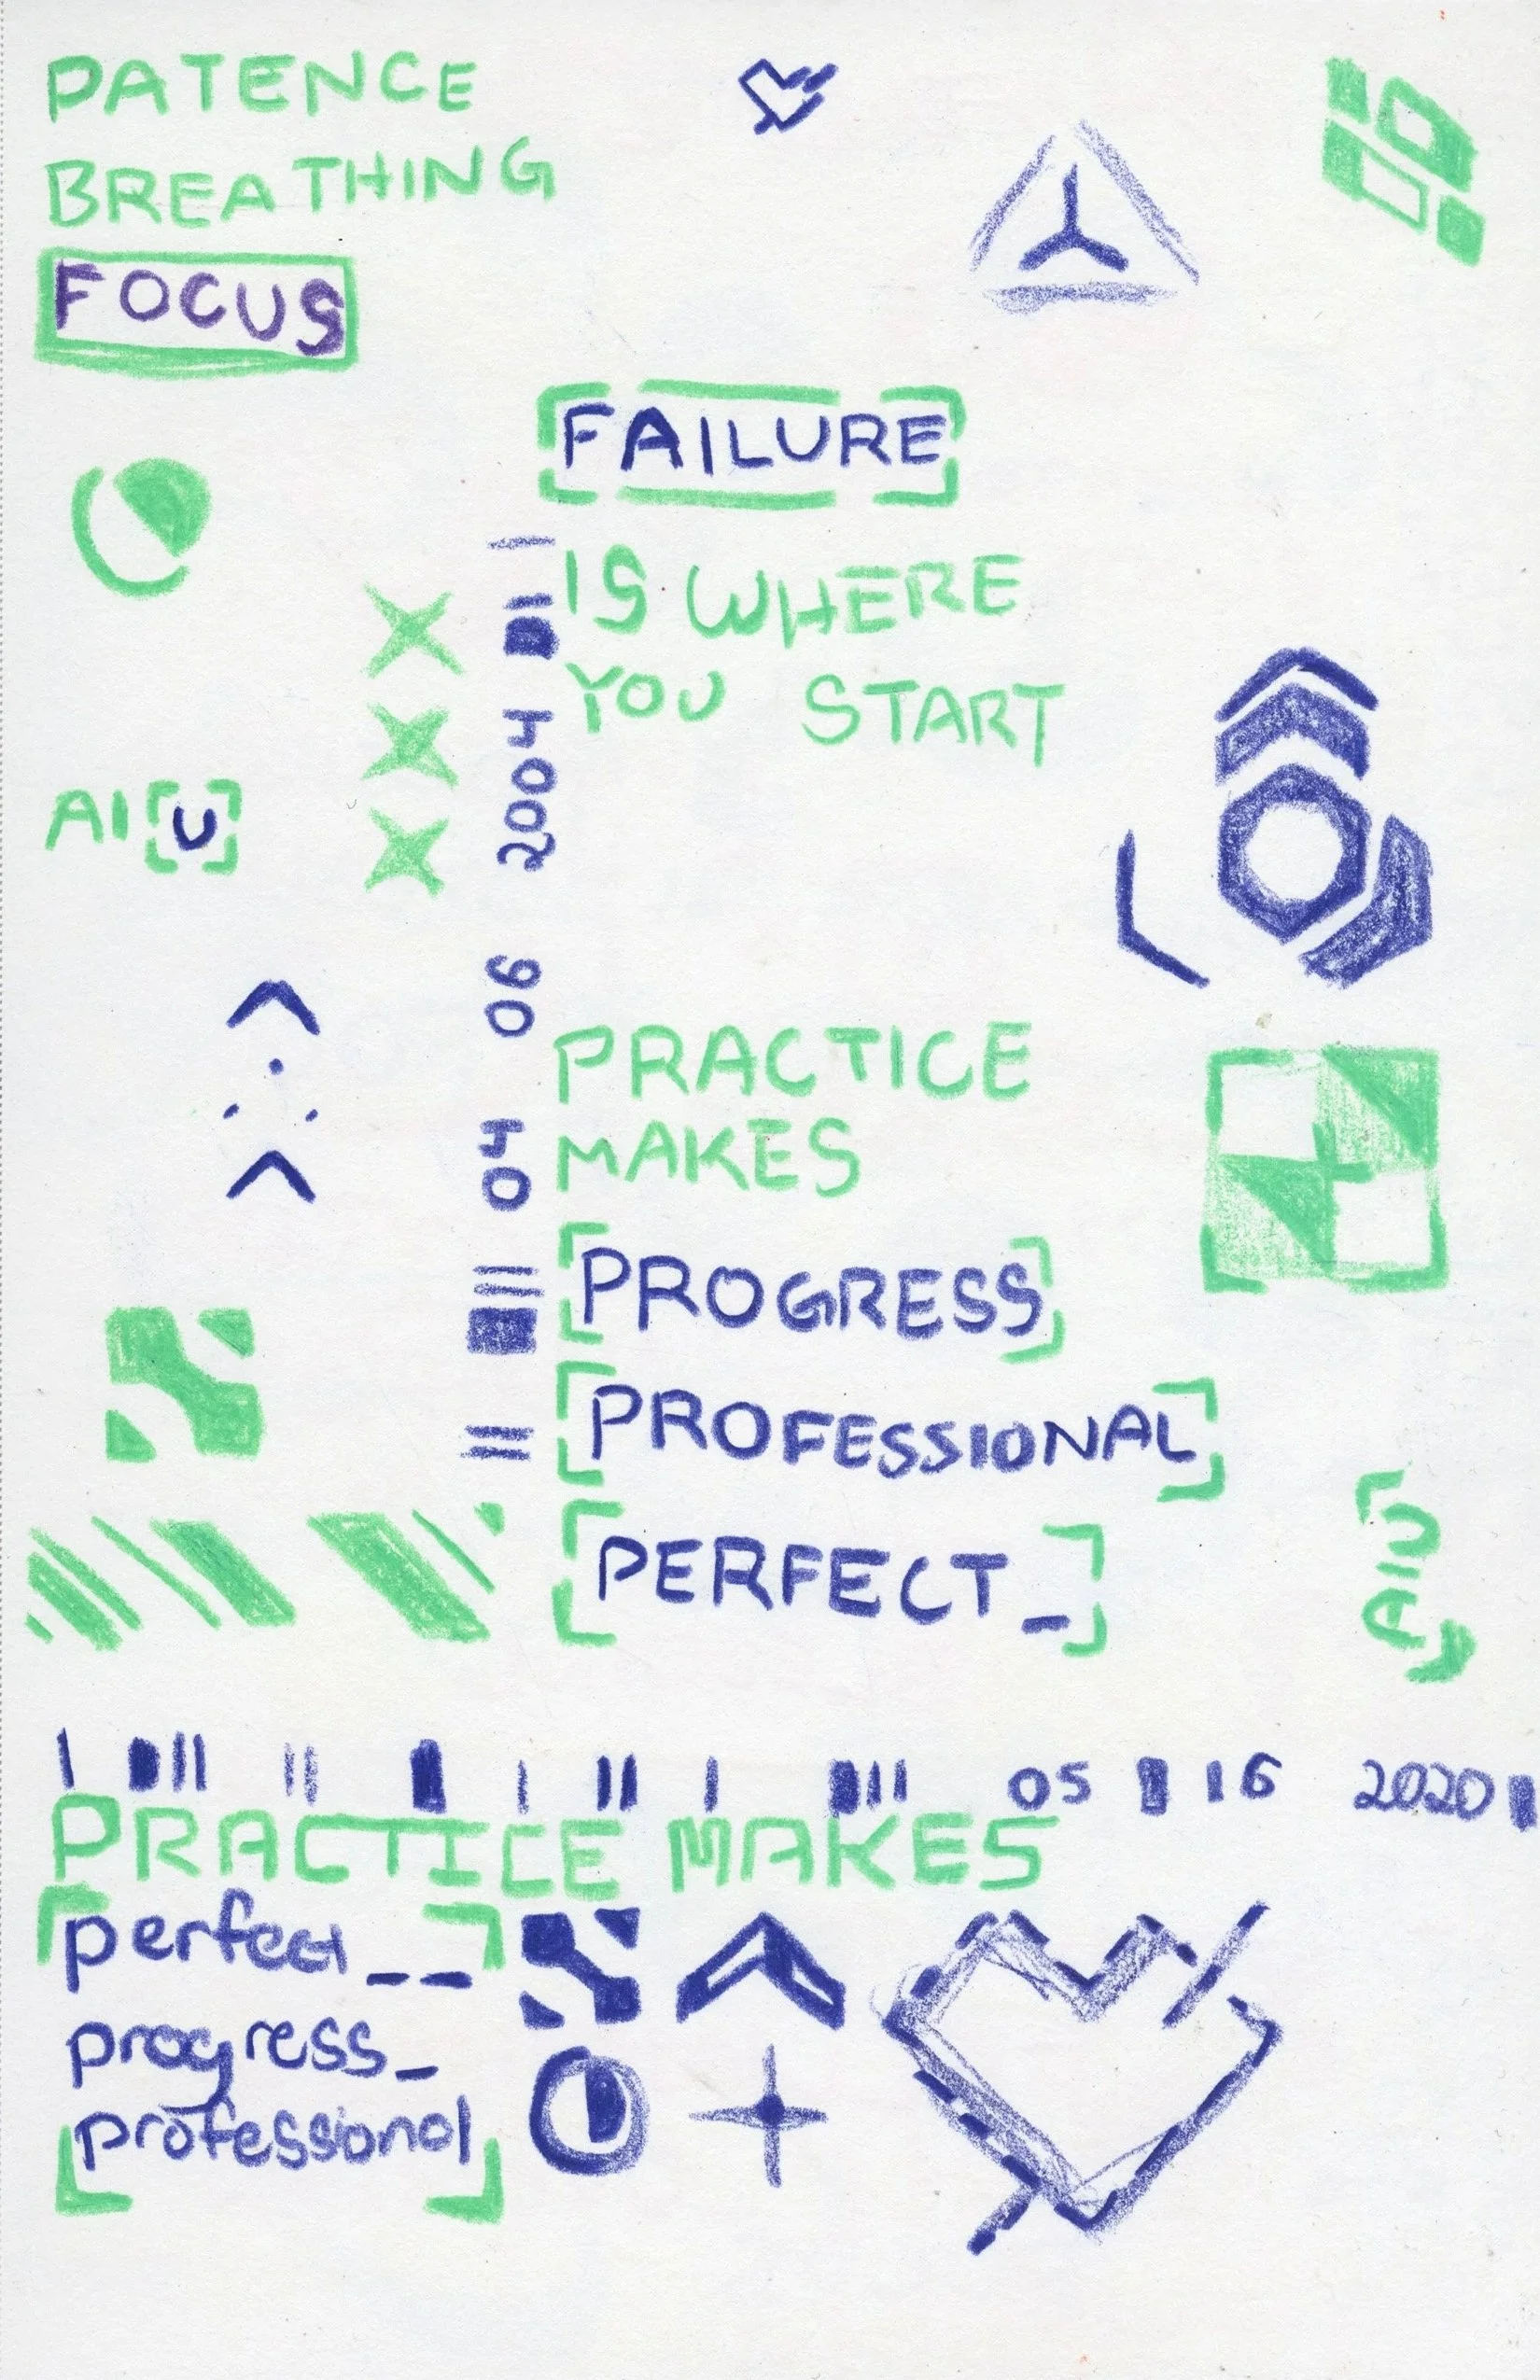 PATENCE
BREATHING
FOCUS
FAILURE
IS WHERE
YOU START
AIU
04 06 2004
PRACTICE
MAKES
PROGRESS
PROFESSIONAL
PERFECT_
AIU
05 16 2020
PRACTICE MAKES
perfect__
progress_
professional